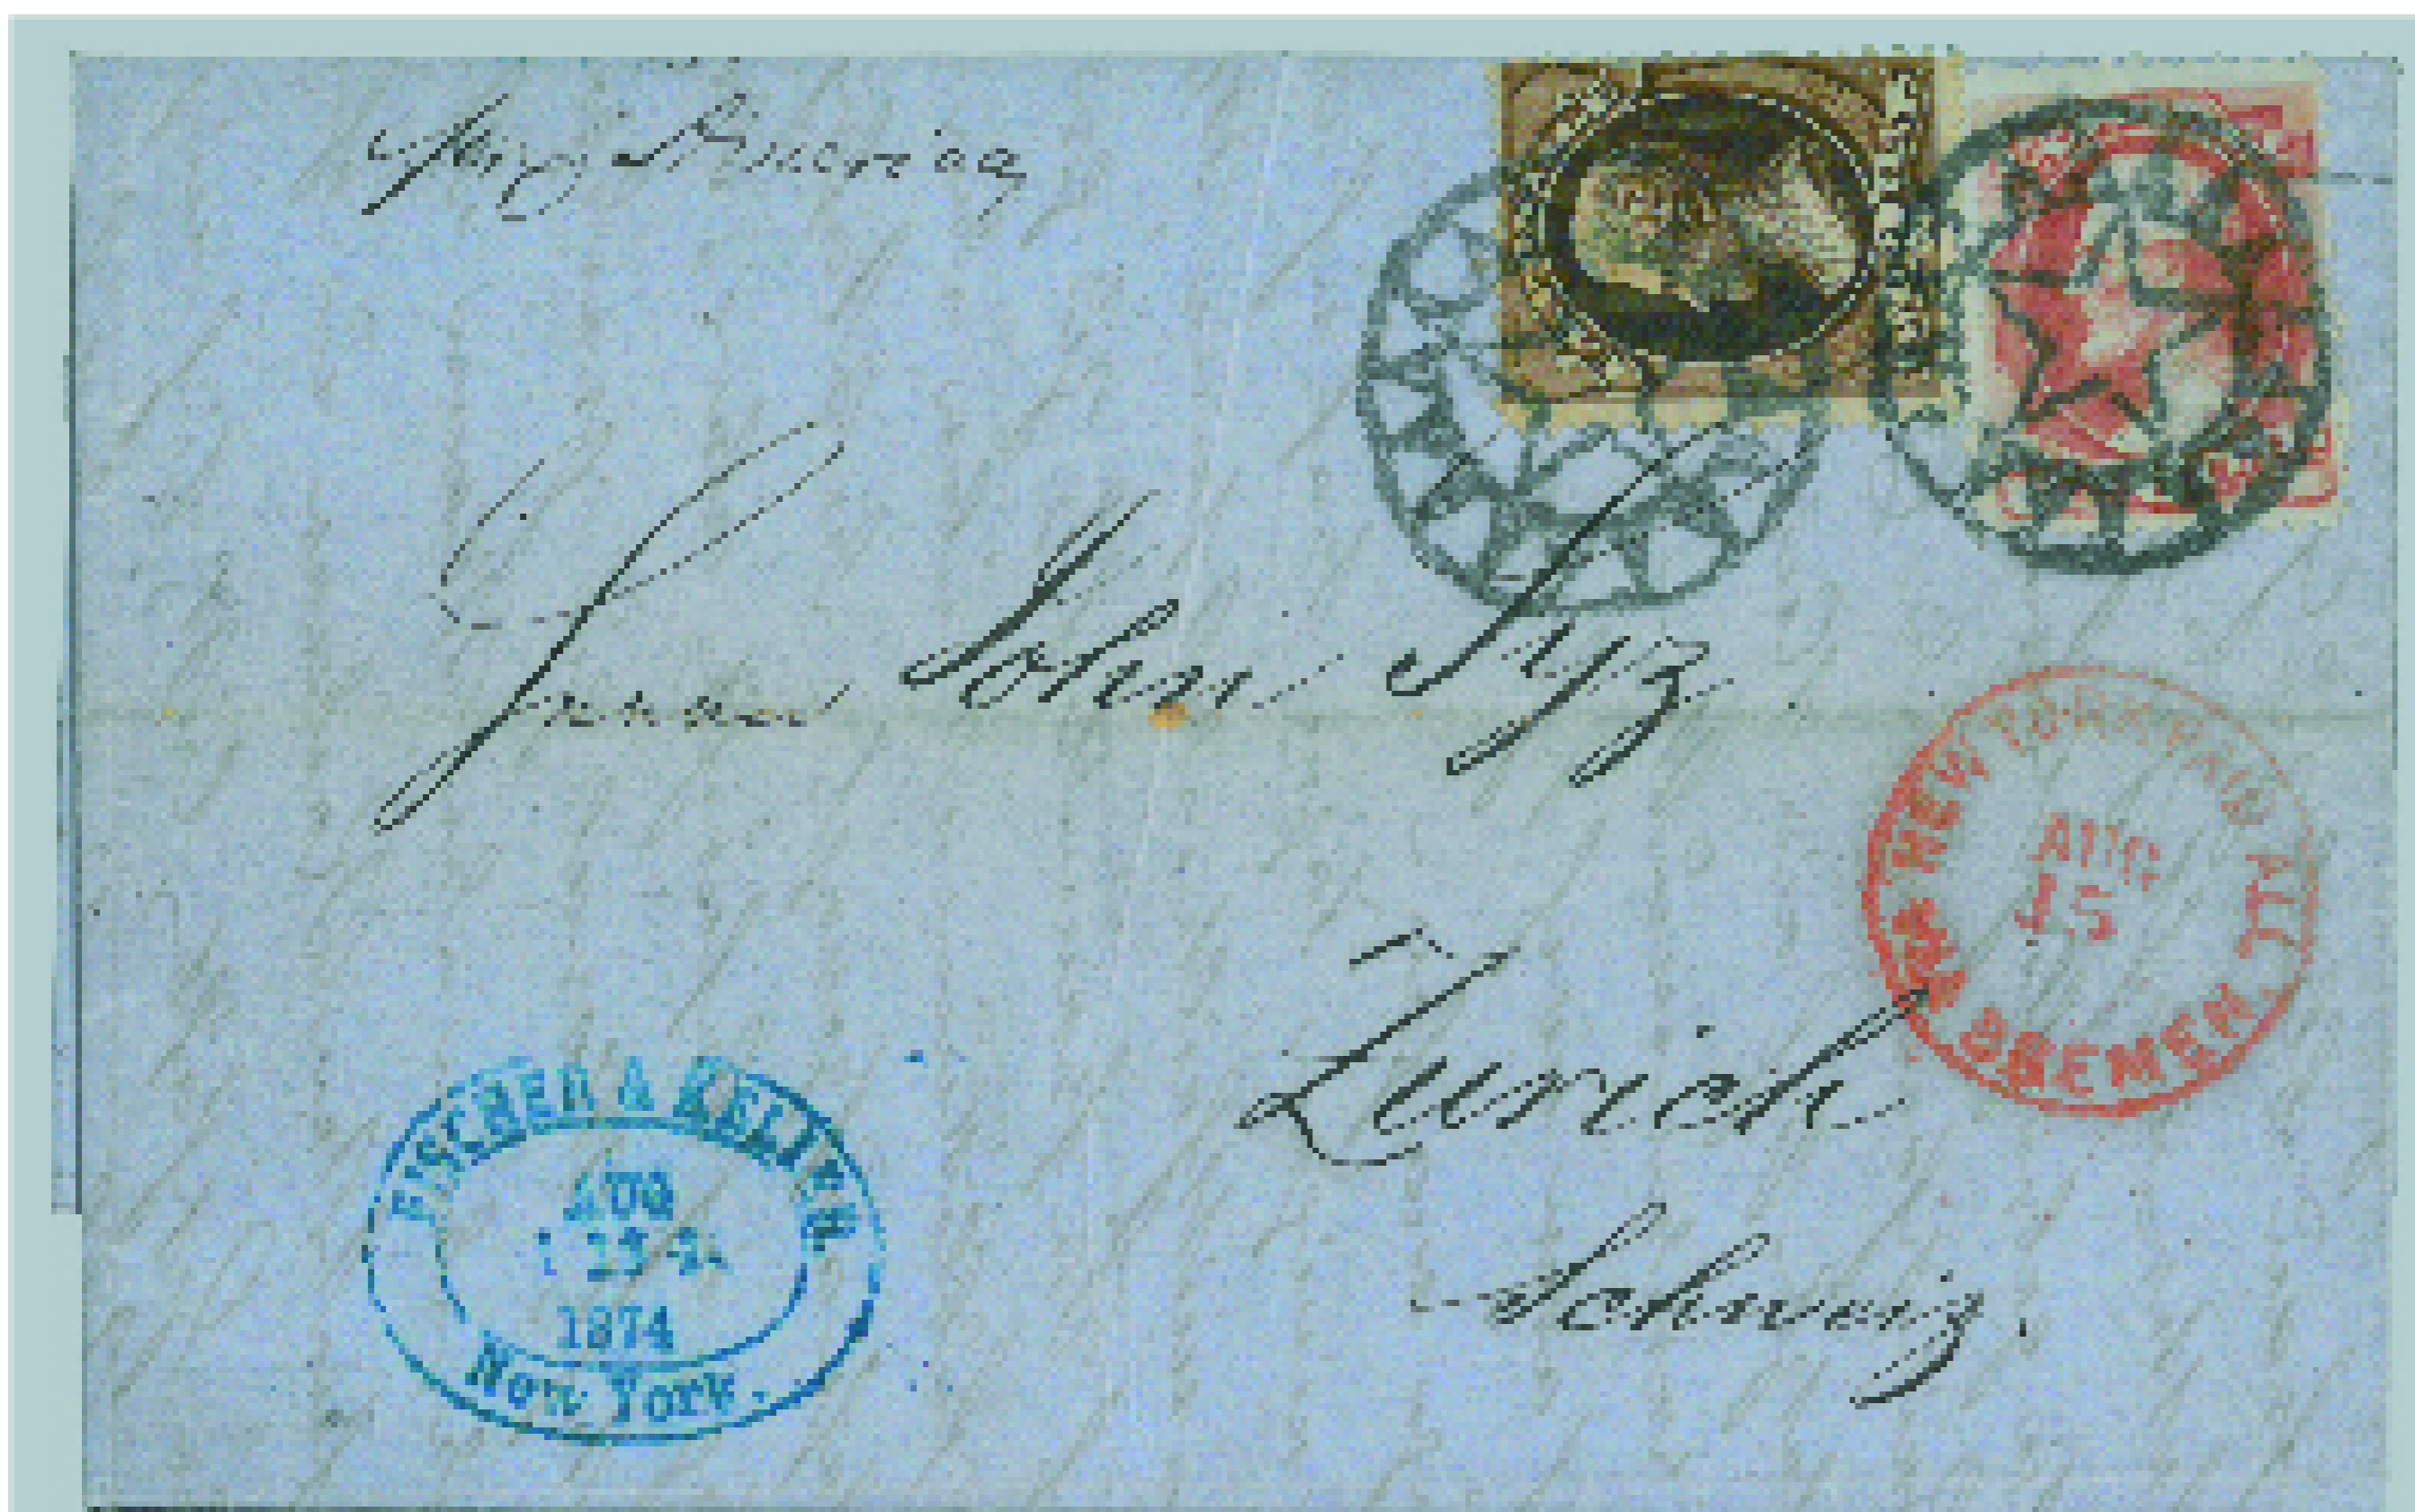 America
John Syz
Zurich
Schweiz.
NEW YORK PAID ALL
AUG
15
BREMEN
FISCHER & KELLER
AUG
1874
New York.